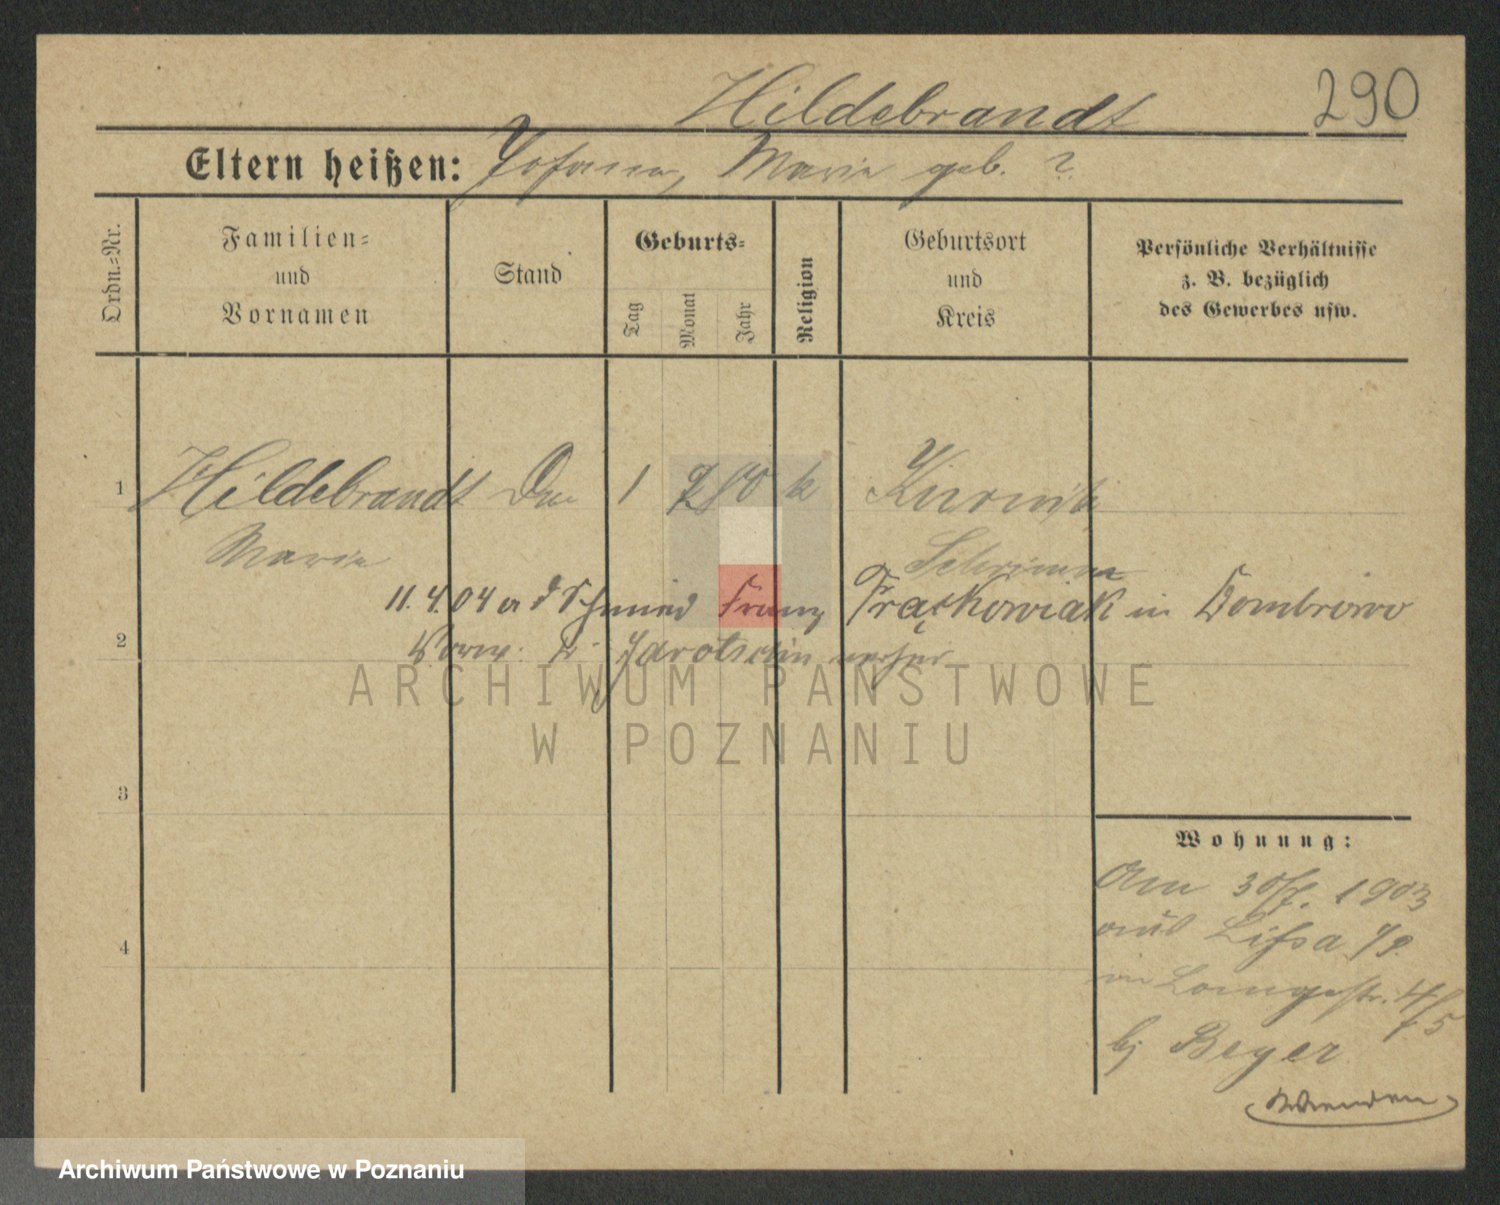 Hildebrandt
290
Eltern heißen: Johann, Marie geb. ?
Ordn.=Nr.
Familien=
und
Vornamen
Stand
Geburts=
Tag
Monat
Jahr
Religion
Geburtsort
und
Kreis
Persönliche Verhältnisse
z. B. bezüglich
des Gewerbes usw.
1 Hildebrandt 1 80 k
Marie Schrimm
11.4.04 Schmied Franz Frąckowiak in Dombrowo
2 Jarotschin
ARCHIWUM PAŃSTWOWE
W POZNANIU
3
Wohnung:
Am 30/7. 1903
aus Lissa i/P.
in Langestr. 4/5
bei Beyer
4
Wenden
Archiwum Państwowe w Poznaniu